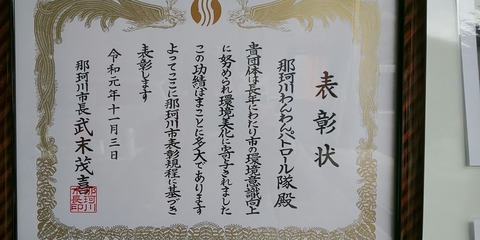 表彰状
那珂川わんわんパトロール隊 殿
貴団体は長年にわたり市の環境意識向上
に努められ環境美化に寄与されました
この功績はまことに多大であります
よってここに那珂川市表彰規程に基づき
表彰します
令和元年十一月三日
那珂川市長 武末茂喜
那珂川市長印